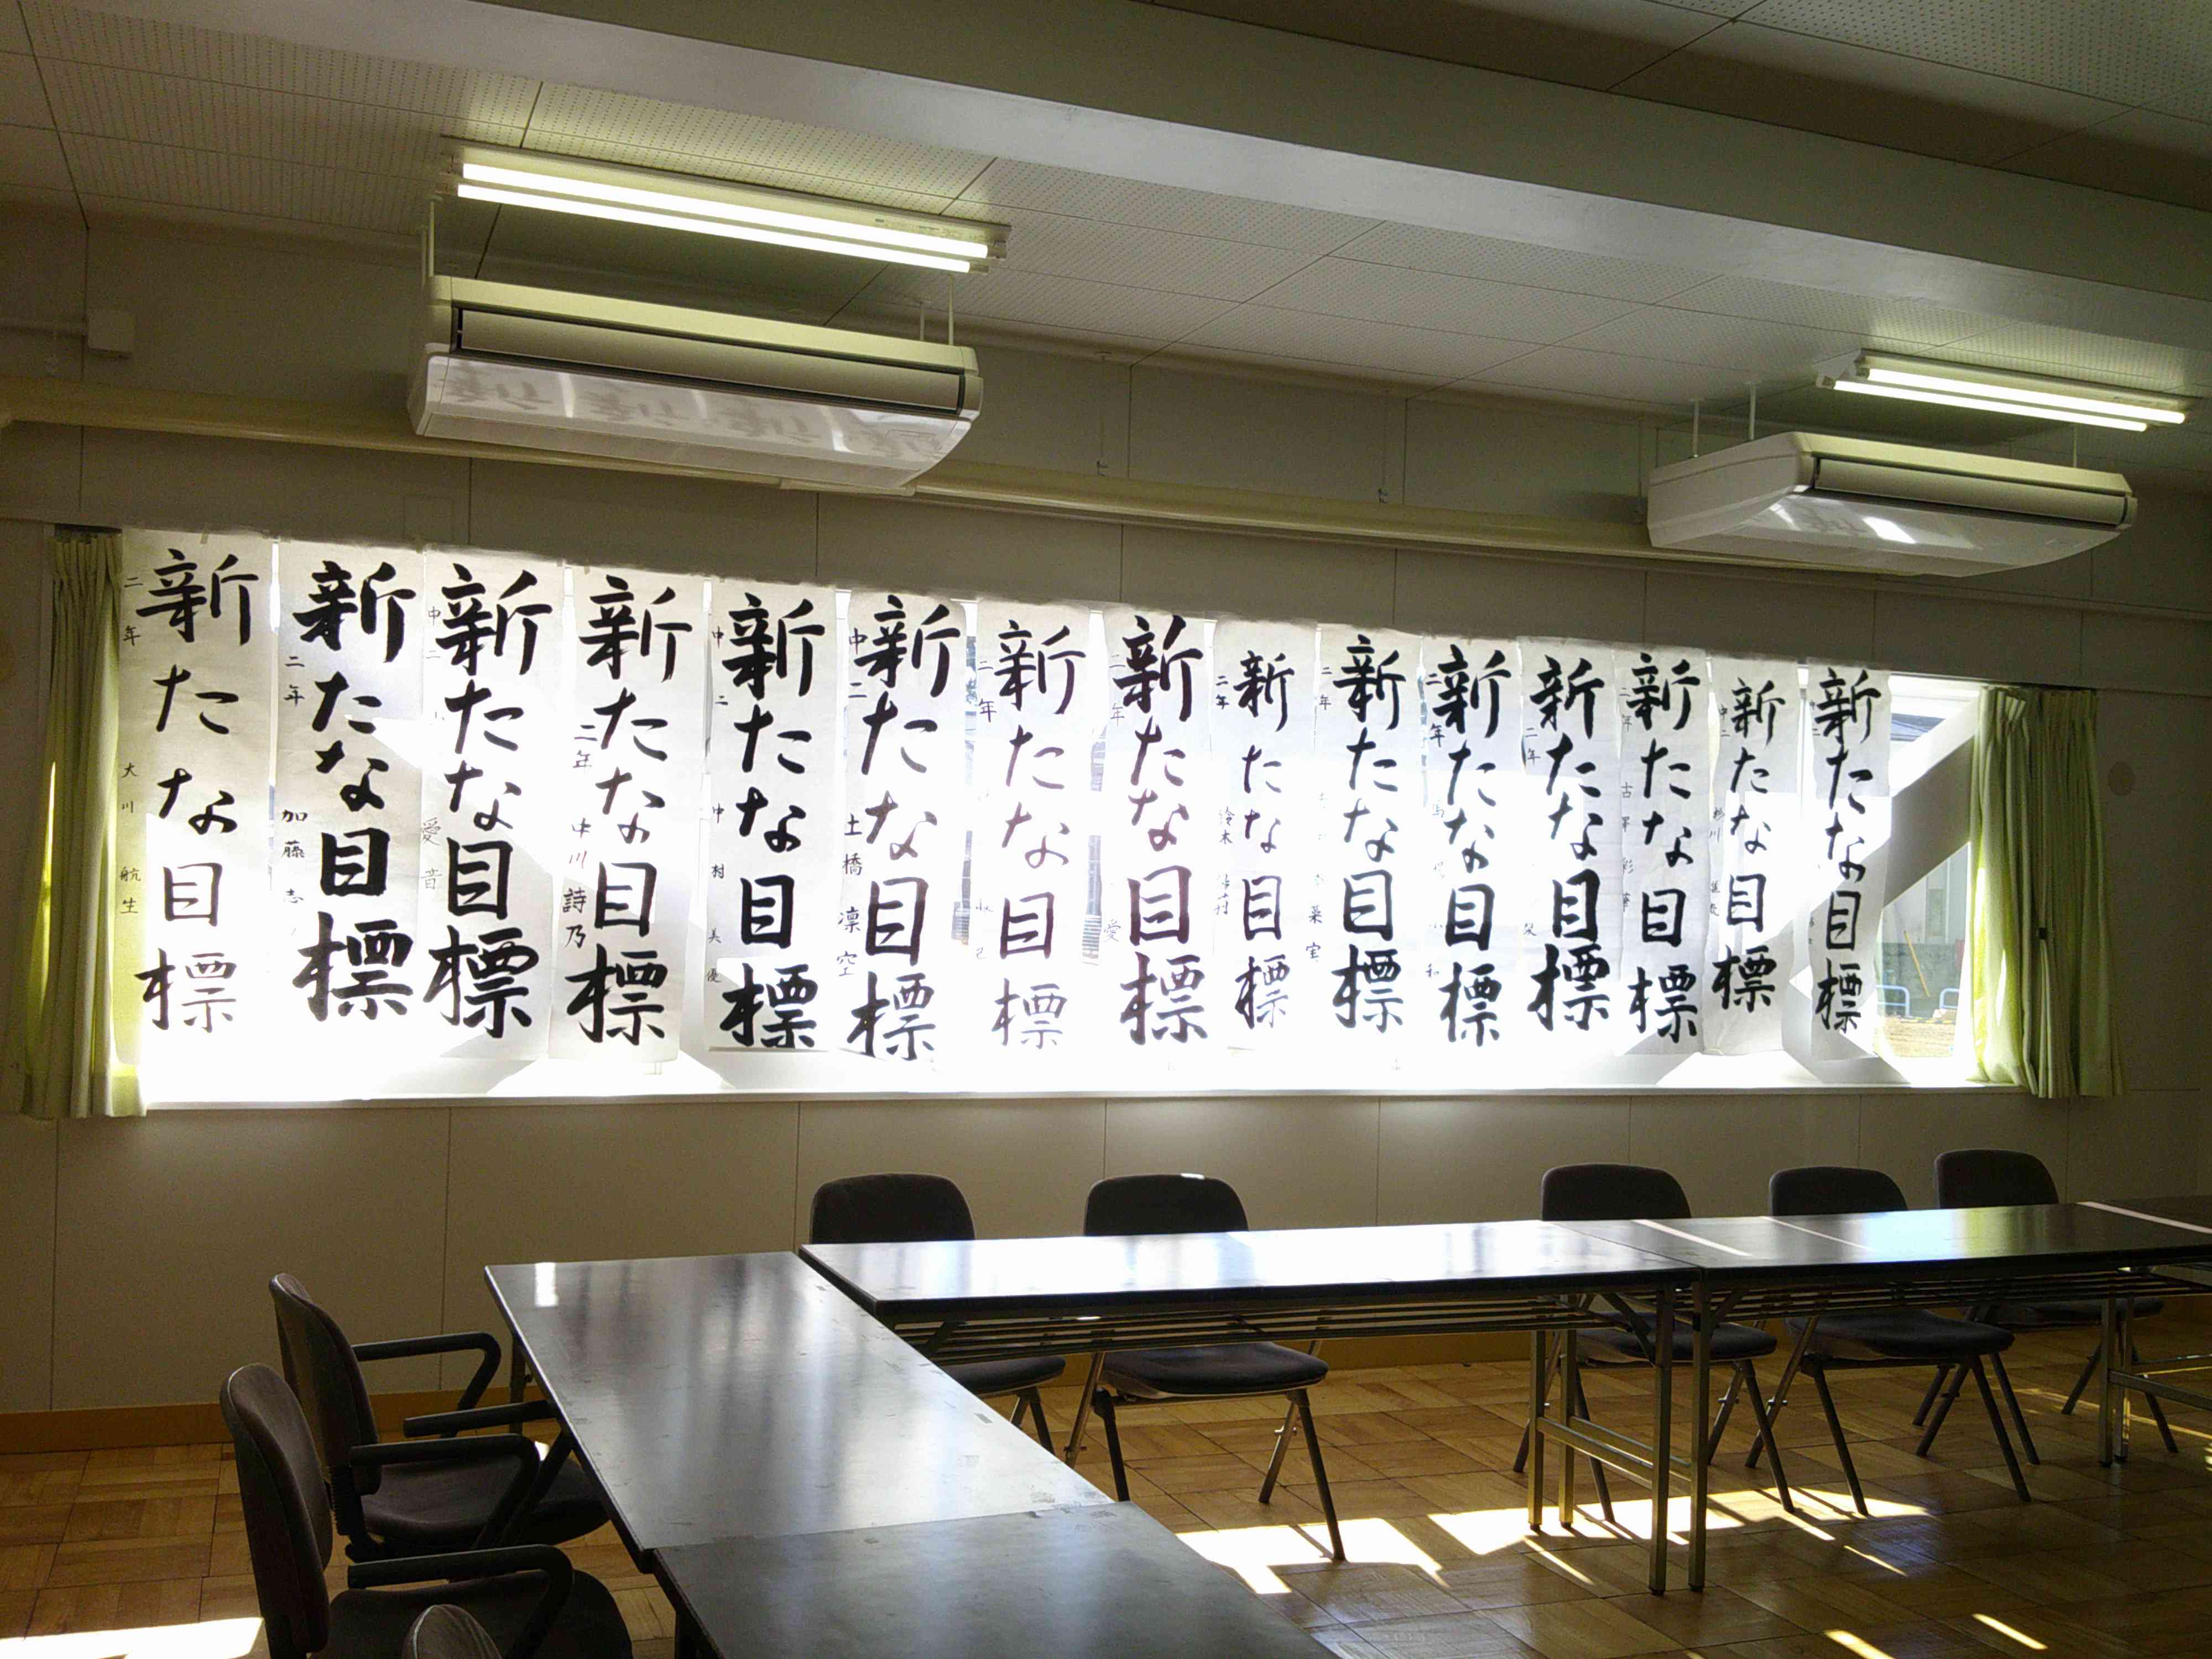 新たな目標
二年 大川 航生
新たな目標
二年 加藤 志
新たな目標
中二 愛音
新たな目標
二年 中川 詩乃
新たな目標
中二 中村 美優
新たな目標
中二 土橋 凛空
新たな目標
二年
新たな目標
二年 愛
新たな目標
二年 鈴木
新たな目標
二年 菜宝
新たな目標
二年
新たな目標
二年
新たな目標
二年 古澤 彩華
新たな目標
中二
新たな目標